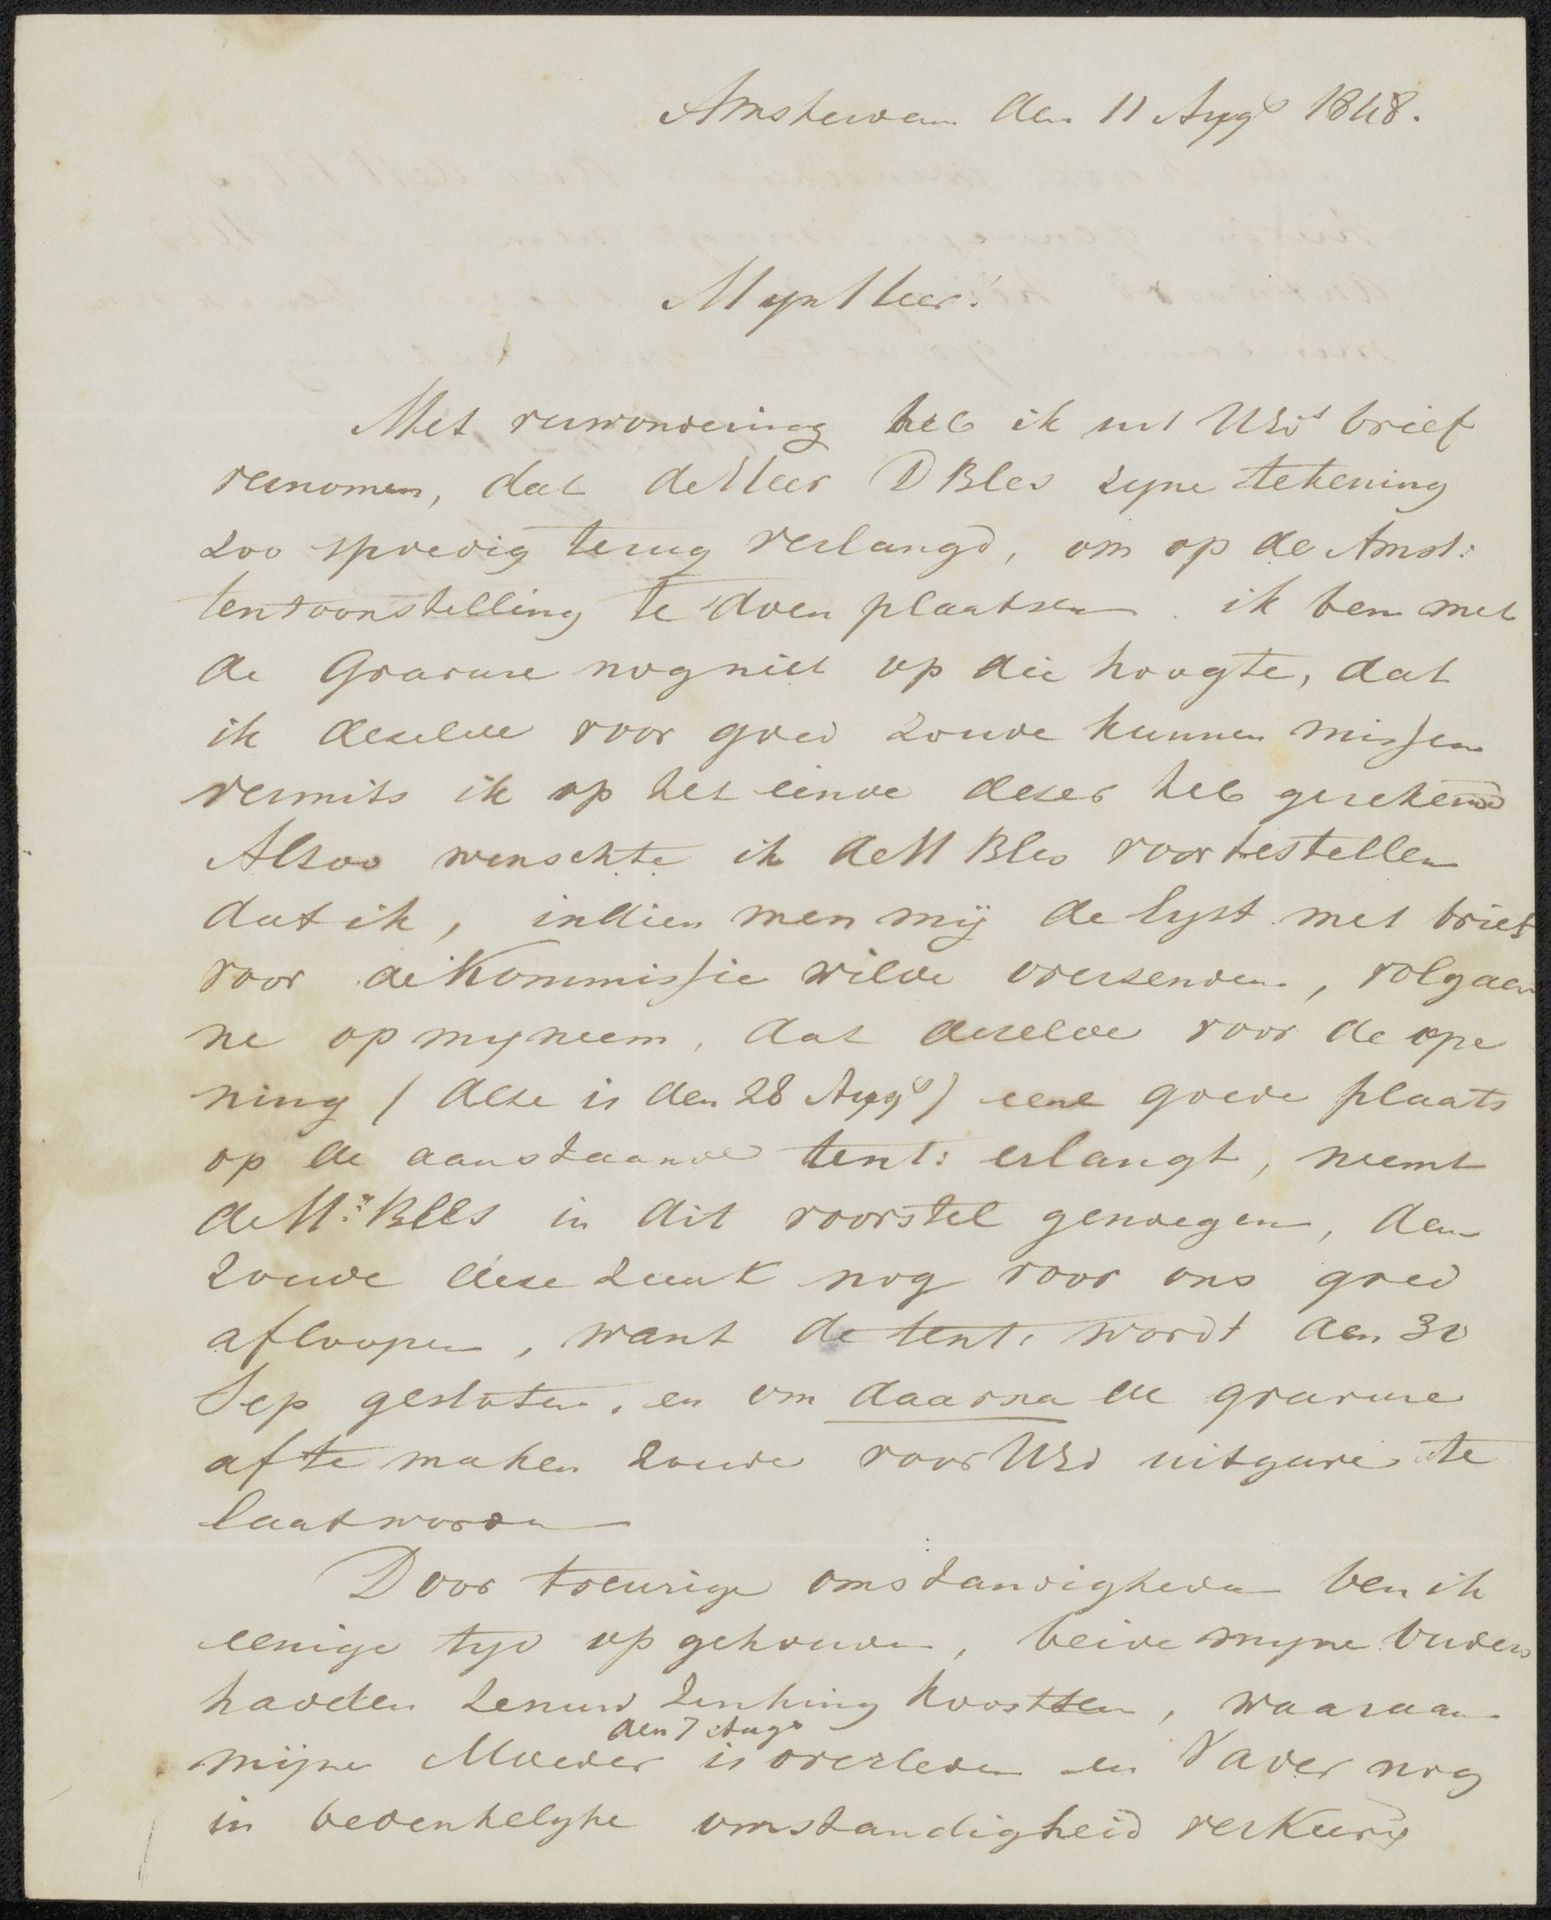 Amsterdam den 11 Augs 1848.
Myn Heer!
Met verwondering heb ik uit UEds brief
vernomen, dat de Heer D Bles zyne tekening
zoo spoedig terug verlangd, om op de Amst:
tentoonstelling te doen plaatsen. ik ben met
de Gravure nog niet op die hoogte, dat
ik dezelve voor goed zoude kunnen missen
vermits ik op het einde dezer heb gerekend
Alzoo wenschte ik de H Bles voor te stellen
dat ik, indien men mij de lyst met brief
voor de Kommissie wilde overzenden, volgaar
ne op my neem, dat dezelve voor de ope
ning / deze is den 28 Augs / eene goede plaats
op de aanstaande tent: erlangt, neemt
de Hr. Bles in dit voorstel genoegen, dan
zoude deze zaak nog voor ons goed
afloopen, want de tent: wordt den 30
Sep gesloten, en om daarna de gravure
af te maken zoude voor UEd uitgave te
laat worden
Door treurige omstandigheden ben ik
eenige tyd opgehouden, beide myne Ouders
hadden zenuw zinking koortsen, waaraan
den 7 Augs
mijne Moeder is overleden en Vader nog
in bedenkelyke omstandigheid verkeerd